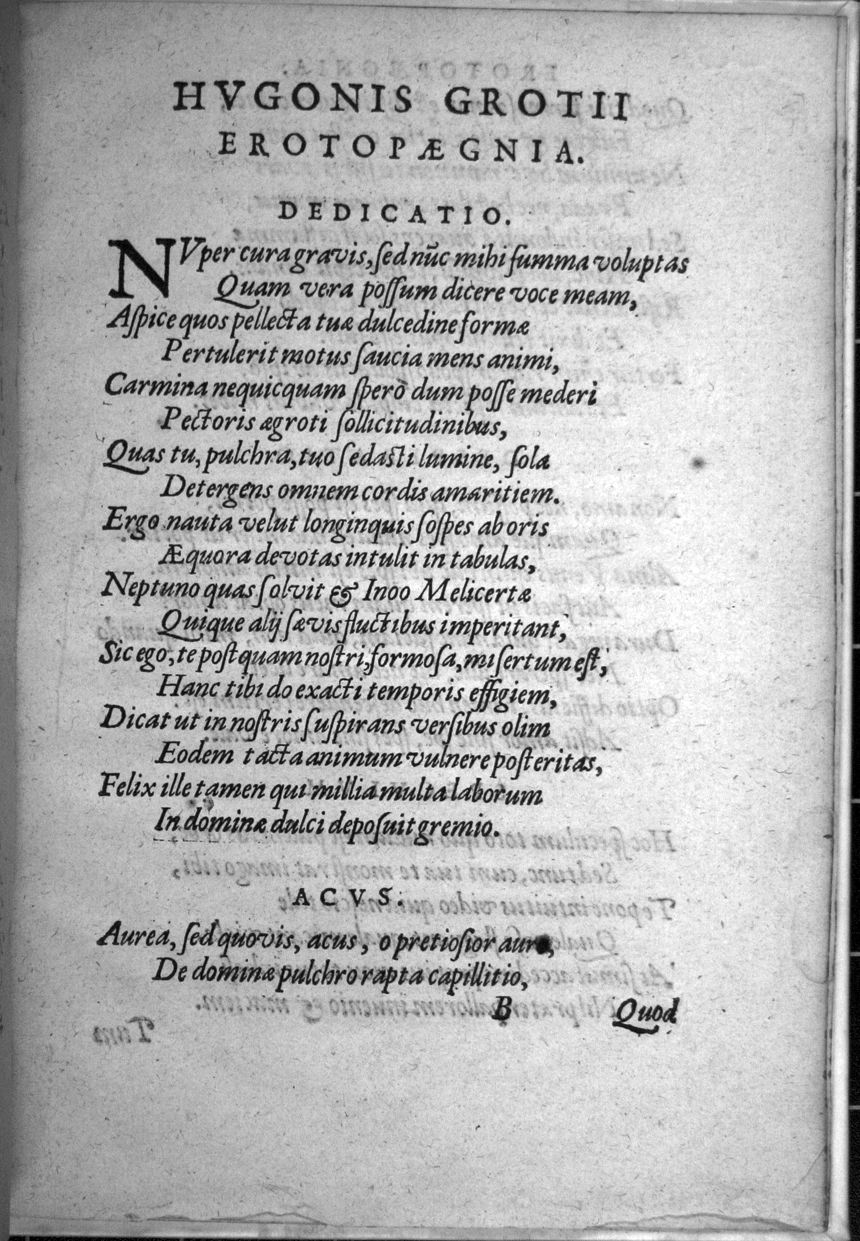 HVGONIS GROTII
EROTOPÆGNIA.
DEDICATIO.
NVper cura gravis, ſed nũc mihi ſumma voluptas
Quam vera poſſum dicere voce meam,
Aſpice quos pellecta tuæ dulcedine formæ
Pertulerit motus ſaucia mens animi,
Carmina nequicquam ſpero dum poſſe mederi
Pectoris ægroti ſollicitudinibus,
Quas tu, pulchra, tuo ſedaſti lumine, ſola
Detergens omnem cordis amaritiem.
Ergo nauta velut longinquis ſoſpes ab oris
Æquora devotas intulit in tabulas,
Neptuno quas ſolvit & Inoo Melicertæ
Quique alij ſævis fluctibus imperitant,
Sic ego, te poſtquam noſtri, formoſa, miſertum eſt,
Hanc tibi do exacti temporis effigiem,
Dicat ut in noſtris ſuſpirans verſibus olim
Eodem tacta animum vulnere poſteritas,
Felix ille tamen qui millia multa laborum
In dominæ dulci depoſuit gremio.
ACVS.
Aurea, ſed quovis, acus, o pretioſior auro,
De dominæ pulchro rapta capillitio,
B Quod